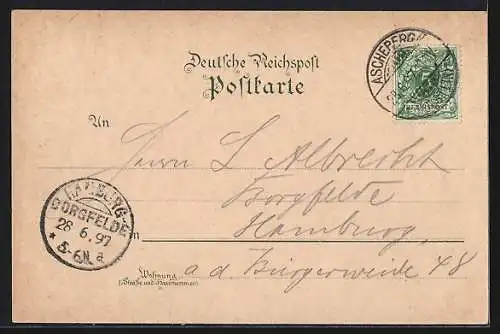 Deutsche Reichspost
Postkarte
ASCHEBERG
An
Herrn L Albrecht
Borgfelde
Hamburg,
HAMBURG-
BORGFELDE
28 6.97
* 5-6N. a
Wohnung
(Straße und Hausnummer)
a. d. Bürgerweide 48